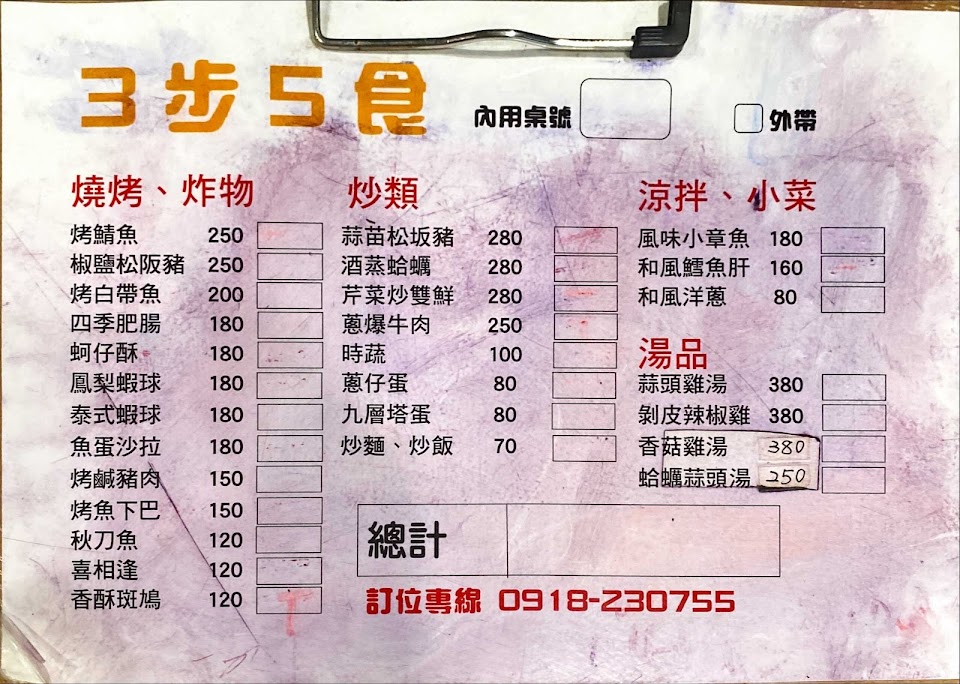 3步5食
內用桌號
外帶
燒烤、炸物
烤鯖魚 250
椒鹽松阪豬 250
烤白帶魚 200
四季肥腸 180
蚵仔酥 180
鳳梨蝦球 180
泰式蝦球 180
魚蛋沙拉 180
烤鹹豬肉 150
烤魚下巴 150
秋刀魚 120
喜相逢 120
香酥斑鳩 120
炒類
蒜苗松坂豬 280
酒蒸蛤蠣 280
芹菜炒雙鮮 280
蔥爆牛肉 250
時蔬 100
蔥仔蛋 80
九層塔蛋 80
炒麵、炒飯 70
涼拌、小菜
風味小章魚 180
和風鱈魚肝 160
和風洋蔥 80
湯品
蒜頭雞湯 380
剝皮辣椒雞 380
香菇雞湯 380
蛤蠣蒜頭湯 250
總計
訂位專線 0918-230755